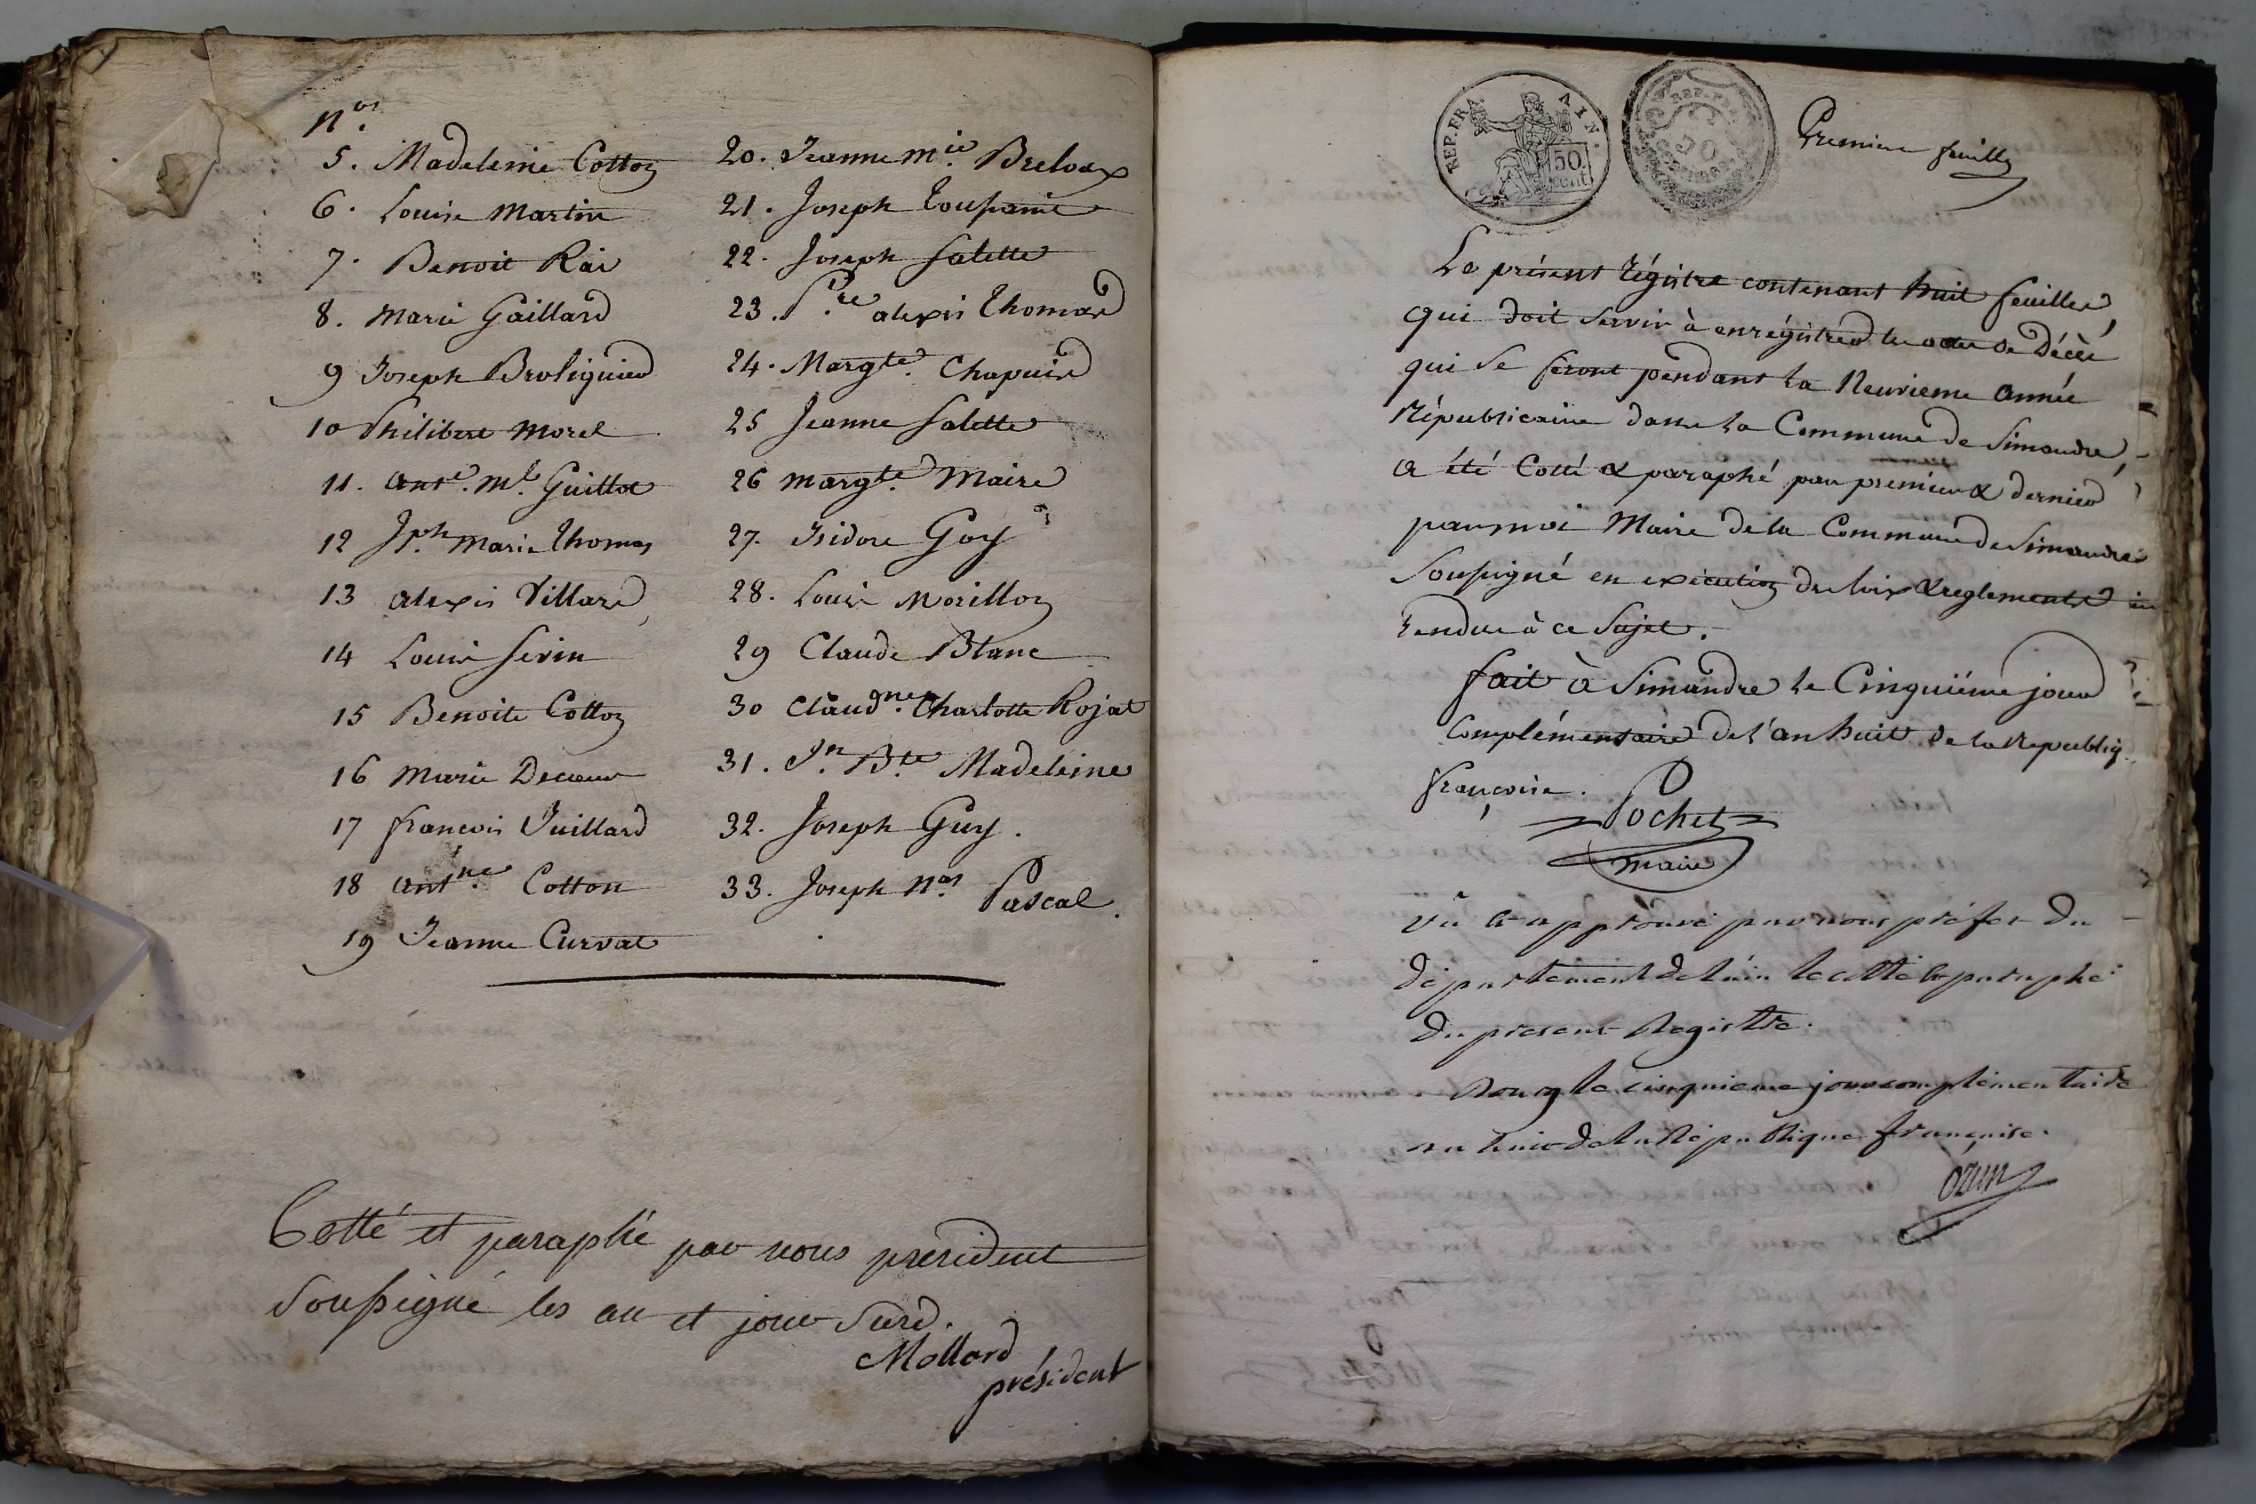 Nos
5. Madeleine Cotton
6. Louise Martin
7. Benoit Rai
8. Marie Gaillard
9 Joseph Broliquier
10 Philibert Morel
11. ante. Ml. Guillot
12 Jph. Marie Thomas
13 alexis Villard
14 Louis Sevin
15 Benoite Cotton
16 Marie Decoeur
17 françois Juillard
18 antne. Cotton
19 Jeanne Curvat
20. Jeanne Mie. Brevaux
21. Joseph Toussaint
22. Joseph Salette
23. Pre. alexis Thomas
24. Margte. Chapuis
25 Jeanne Salette
26 Margte. Maire
27. Isidore Goy
28. Louis Morillon
29 Claude Blanc
30 Claudne. Charlotte Rojat
31. Jn. Bte. Madeleine
32. Joseph Guy.
33. Joseph Nas. Pascal.
Cotté et paraphé par nous président
soussigné les an et jour susd.
Mollard
président
REP. FRA. AIN.
50 cent.
REP. FRA.
Premiere feuille
Le présent régistre contenant huit feuilles,
qui doit servir à enrégistrer les actes de Décès
qui se feront pendant la Neuvieme année
républicaine dans la Commune de Simandre,
a été Cotté & paraphé par premier & dernier
par moi Maire de la Commune de Simandre
soussigné en exécution des loix & reglements
rendus à ce sujet.
fait à Simandre le Cinquiéme jour
Complémentaire de l'an huit de la Republiq.
françoise.
Pochet
maire
Vû et approuvé par nous préfet du
département de l'ain le cotté et paraphé
du present Registre.
Bourg le cinquieme jour complémentaire
an huit de la République française.
Ozun